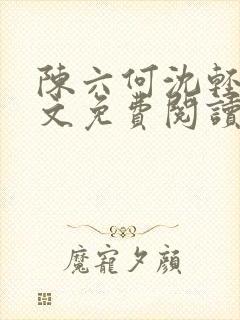 陳六何沈輕
文免費閱讀
魔寵夕顏